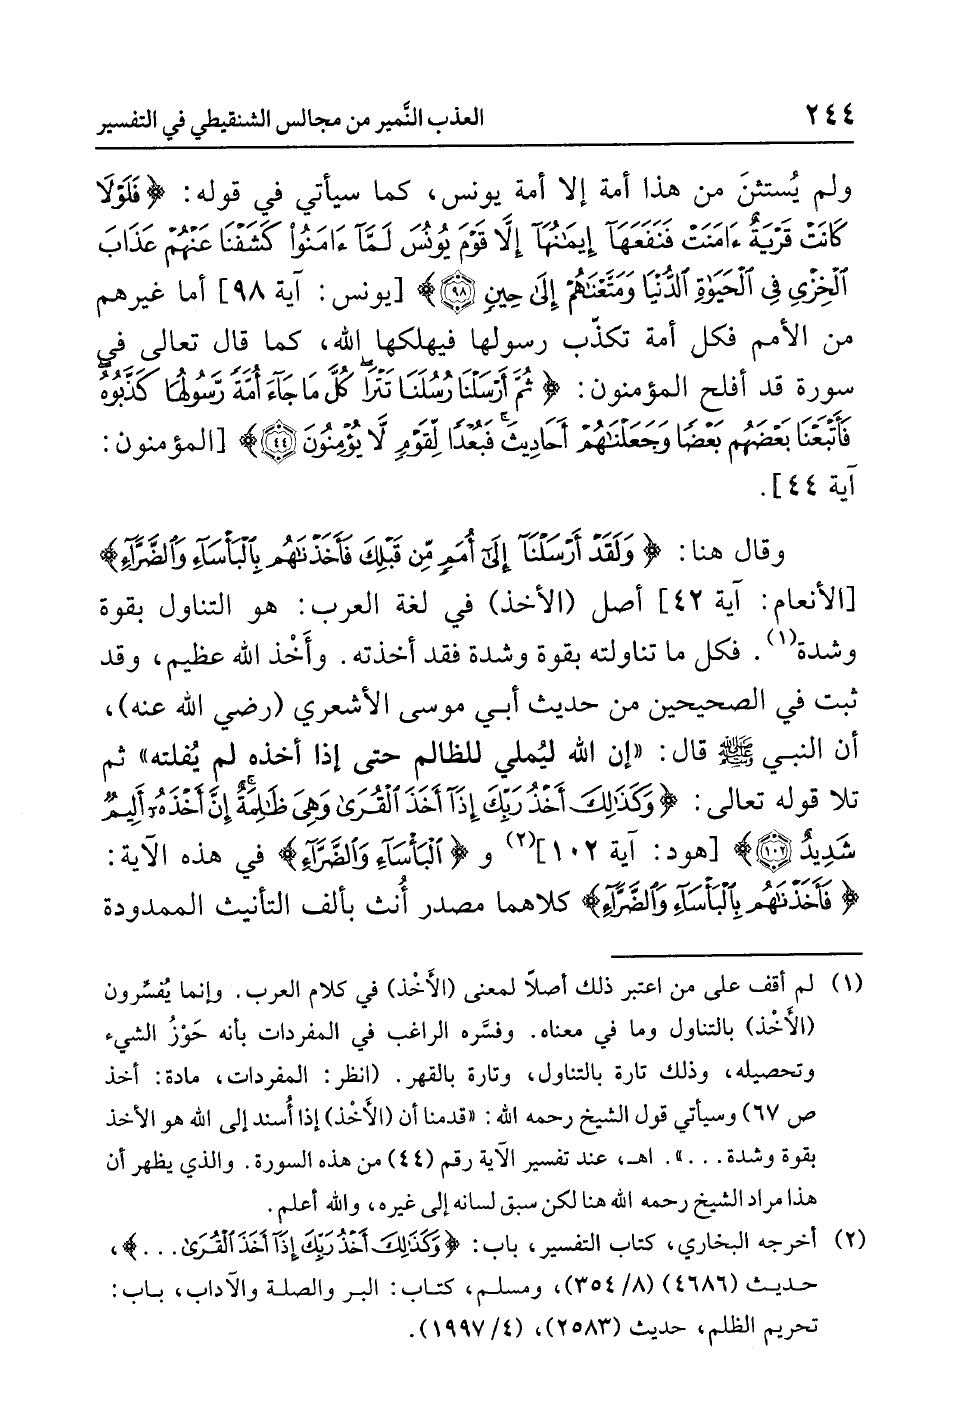 ٢٤٤ العذب النَّمير من مجالس الشنقيطي في التفسير
ولم يُستثنَ من هذا أمة إلا أمة يونس، كما سيأتي في قوله: ﴿فَلَوْلَا
كَانَتْ قَرْيَةٌ ءَامَنَتْ فَنَفَعَهَا إِيمَٰنُهَا إِلَّا قَوْمَ يُونُسَ لَمَّا ءَامَنُوا۟ كَشَفْنَا عَنْهُمْ عَذَابَ
ٱلْخِزْىِ فِى ٱلْحَيَوٰةِ ٱلدُّنْيَا وَمَتَّعْنَٰهُمْ إِلَىٰ حِينٍ ٩٨﴾ [يونس: آية ٩٨] أما غيرهم
من الأمم فكل أمة تكذّب رسولها فيهلكها الله، كما قال تعالى في
سورة قد أفلح المؤمنون: ﴿ثُمَّ أَرْسَلْنَا رُسُلَنَا تَتْرَا كُلَّ مَا جَآءَ أُمَّةً رَّسُولُهَا كَذَّبُوهُ
فَأَتْبَعْنَا بَعْضَهُم بَعْضًا وَجَعَلْنَٰهُمْ أَحَادِيثَ فَبُعْدًا لِّقَوْمٍ لَّا يُؤْمِنُونَ ٤٤﴾ [المؤمنون:
آية ٤٤].
وقال هنا: ﴿وَلَقَدْ أَرْسَلْنَآ إِلَىٰٓ أُمَمٍ مِّن قَبْلِكَ فَأَخَذْنَٰهُم بِٱلْبَأْسَآءِ وَٱلضَّرَّآءِ﴾
[الأنعام: آية ٤٢] أصل (الأخذ) في لغة العرب: هو التناول بقوة
وشدة(١). فكل ما تناولته بقوة وشدة فقد أخذته. وأَخْذ الله عظيم، وقد
ثبت في الصحيحين من حديث أبـي موسى الأشعري (رضي الله عنه)،
أن النبـي ﷺ قال: «إن الله ليُملي للظالم حتى إذا أخذه لم يُفلته» ثم
تلا قوله تعالى: ﴿وَكَذَٰلِكَ أَخْذُ رَبِّكَ إِذَآ أَخَذَ ٱلْقُرَىٰ وَهِىَ ظَٰلِمَةٌ إِنَّ أَخْذَهُۥٓ أَلِيمٌ
شَدِيدٌ ١٠٢﴾ [هود: آية ١٠٢](٢) و ﴿ٱلْبَأْسَآءِ وَٱلضَّرَّآءِ﴾ في هذه الآية:
﴿فَأَخَذْنَٰهُم بِٱلْبَأْسَآءِ وَٱلضَّرَّآءِ﴾ كلاهما مصدر أُنث بألف التأنيث الممدودة
(١) لم أقف على من اعتبر ذلك أصلاً لمعنى (الأَخْذ) في كلام العرب. وإنما يُفسِّرون
(الأَخْذ) بالتناول وما في معناه. وفسَّره الراغب في المفردات بأنه حَوْزُ الشيء
وتحصيله، وذلك تارة بالتناول، وتارة بالقهر. (انظر: المفردات، مادة: أخذ
ص ٦٧) وسيأتي قول الشيخ رحمه الله: «قدمنا أن (الأَخْذ) إذا أُسند إلى الله هو الأخذ
بقوة وشدة...». اهـ، عند تفسير الآية رقم (٤٤) من هذه السورة. والذي يظهر أن
هذا مراد الشيخ رحمه الله هنا لكن سبق لسانه إلى غيره، والله أعلم.
(٢) أخرجه البخاري، كتاب التفسير، باب: ﴿وَكَذَٰلِكَ أَخْذُ رَبِّكَ إِذَآ أَخَذَ ٱلْقُرَىٰ...﴾،
حديث (٤٦٨٦) (٨/ ٣٥٤)، ومسلم، كتاب: البر والصلة والآداب، باب:
تحريم الظلم، حديث (٢٥٨٣)، (٤/ ١٩٩٧).